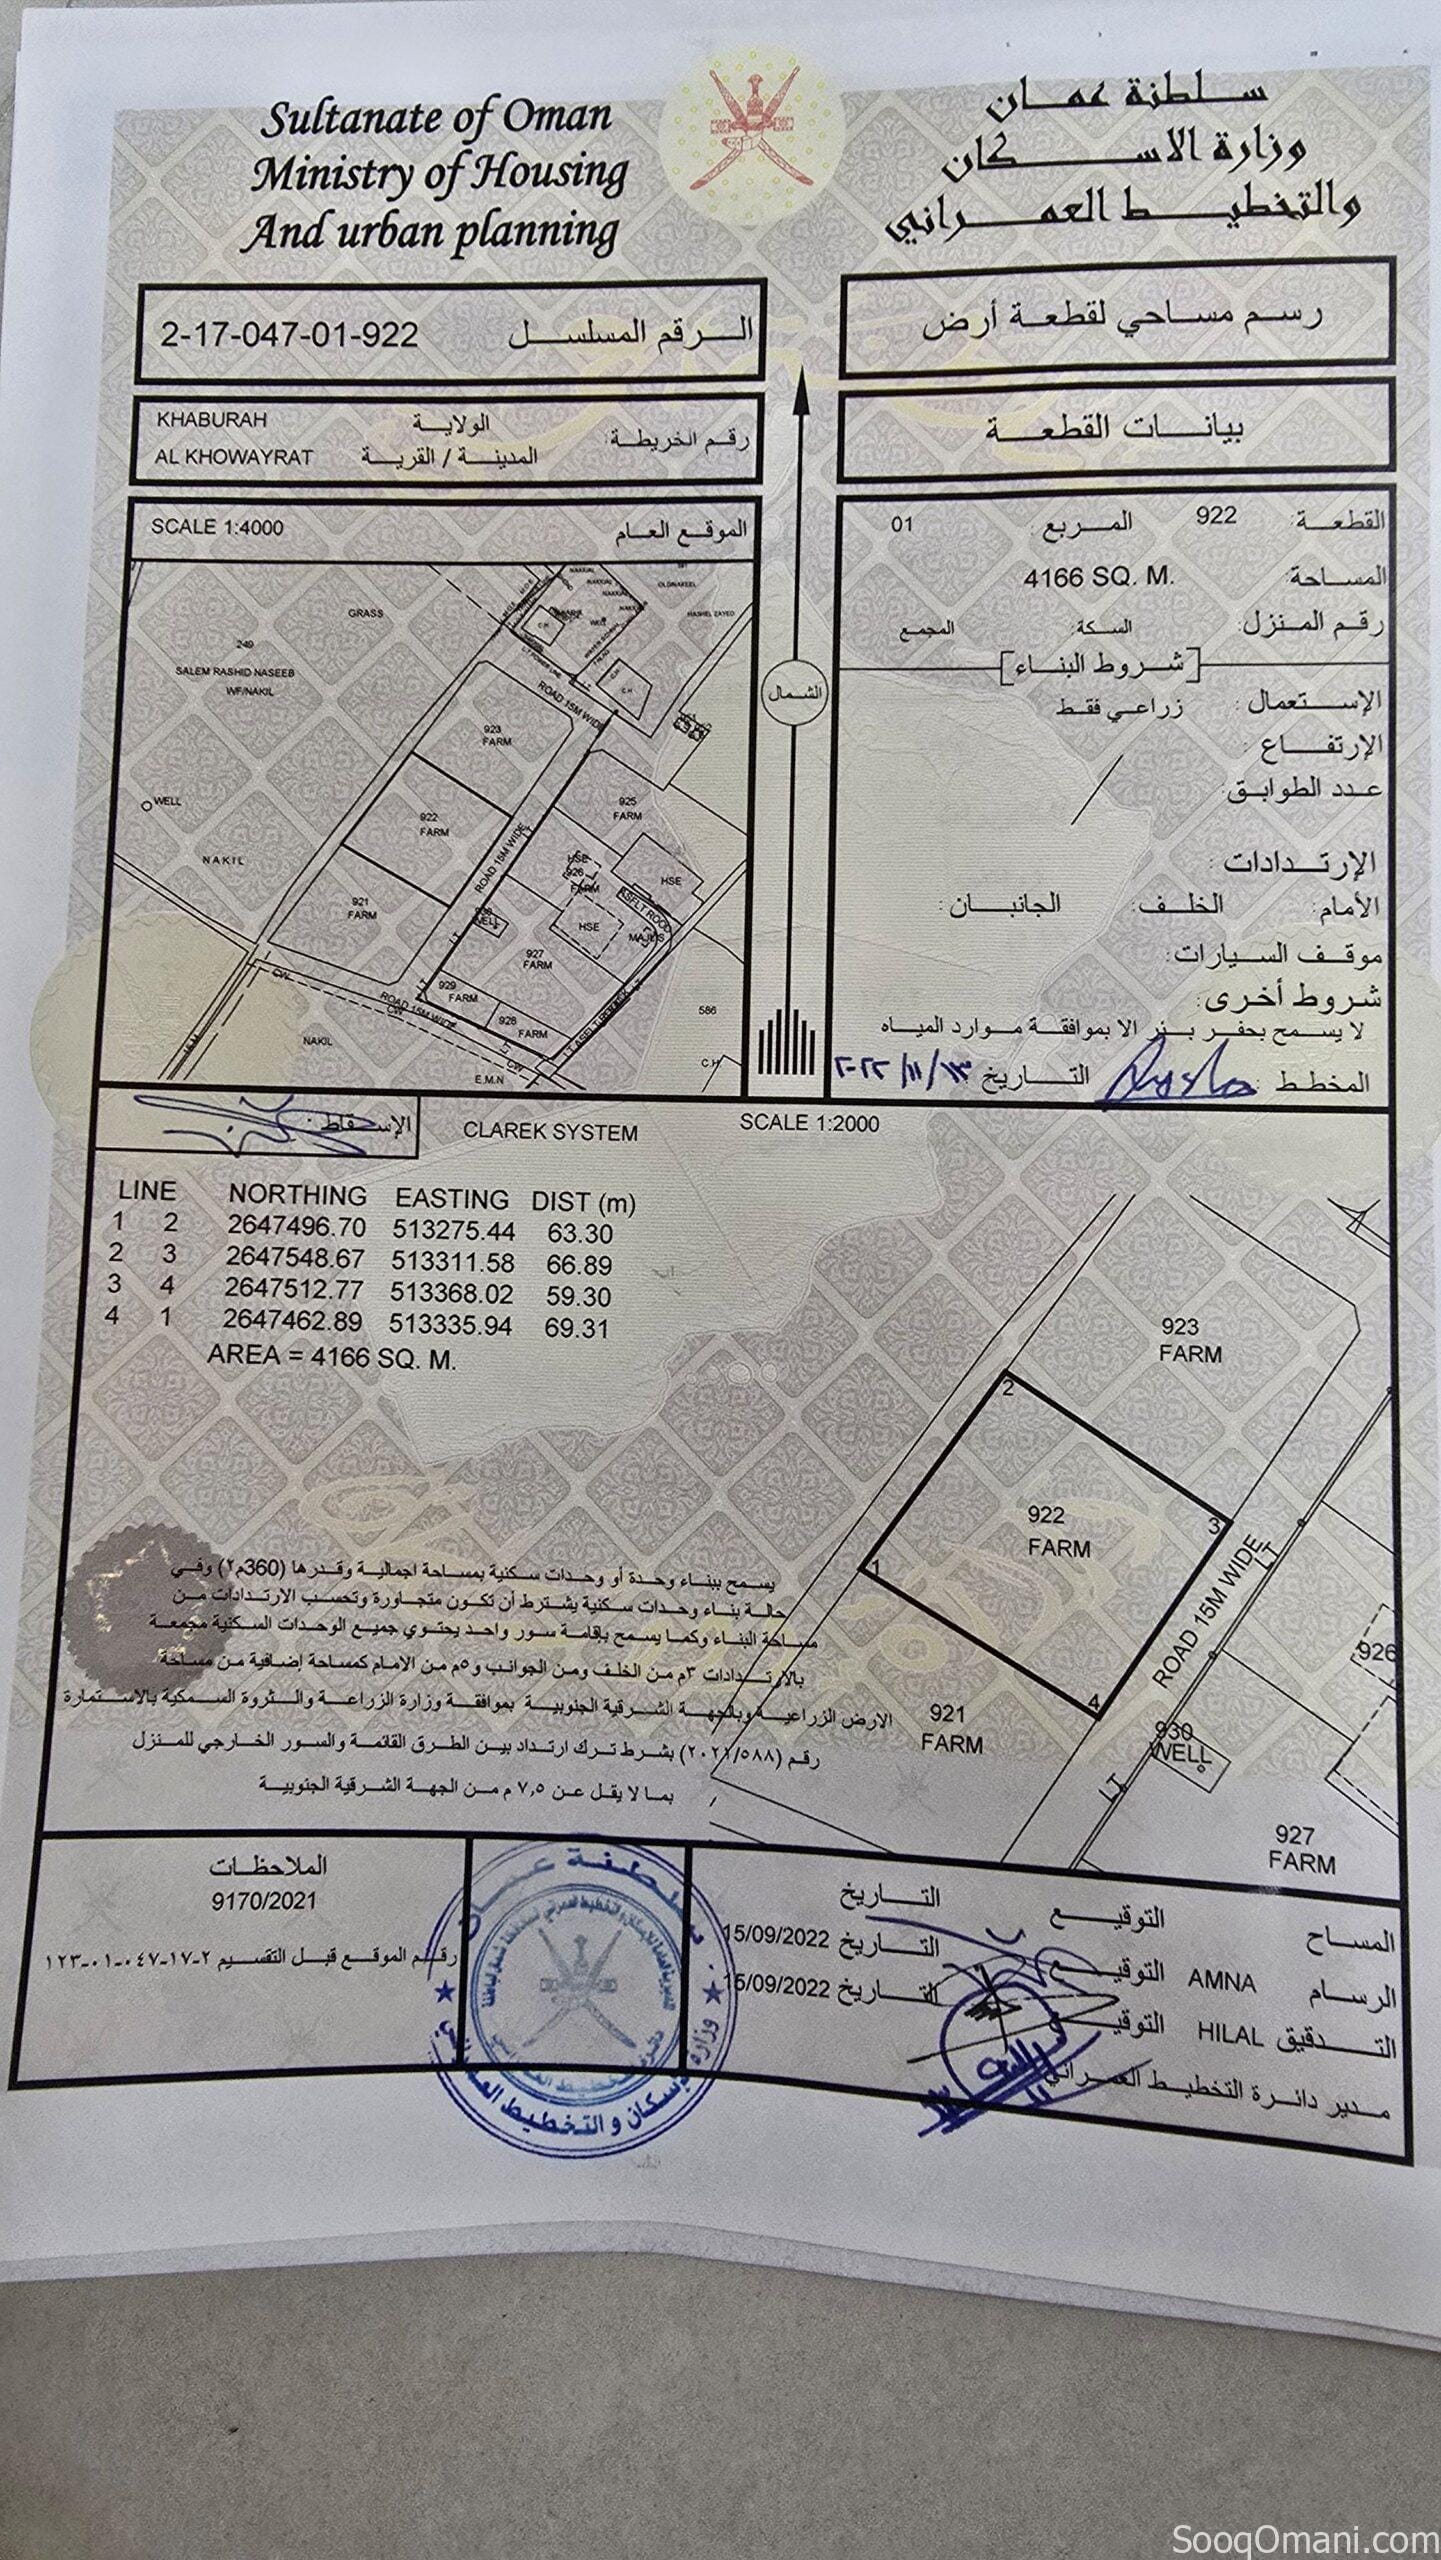 Sultanate of Oman
Ministry of Housing
And urban planning
سلطنة عمان
وزارة الاسكان
والتخطيط العمراني
رسم مساحي لقطعة أرض
الرقم المسلسل 2-17-047-01-922
بيانات القطعة
رقم الخريطة:
الولاية KHABURAH
المدينة / القرية AL KHOWAYRAT
القطعة: 922 المربع : 01
المساحة: 4166 SQ. M.
رقم المنزل: السكة: المجمع
[شروط البناء]
الإستعمال : زراعي فقط
الإرتفاع :
عدد الطوابق:
الإرتدادات :
الأمام: الخلف: الجانبان :
موقف السيارات:
شروط أخرى:
لا يسمح بحفر بئر الا بموافقة موارد المياه
المخطط : التاريخ ٢٠٢٢/١١/١٣
الموقع العام SCALE 1:4000
GRASS
249
SALEM RASHID NASEEB
WF/NAKIL
OLDNAKEEL
HASHEL ZAYED
NAKKIAL
C.H
WELL
C.H
L.T POWER LINE
ROAD 15M WIDE
923
FARM
WELL
922
FARM
925
FARM
NAKIL
ROAD 15M WIDE
HSE
926
FARM
HSE
921
FARM
930
WELL
HSE
MAJLIS
LT
927
FARM
CW
ROAD 15M WIDE
CW
929
FARM
928
FARM
586
NAKIL
LT
CW
E.M.N
C.H
الشمال
الإسقاط :
CLAREK SYSTEM
SCALE 1:2000
LINE NORTHING EASTING DIST (m)
1 2 2647496.70 513275.44 63.30
2 3 2647548.67 513311.58 66.89
3 4 2647512.77 513368.02 59.30
4 1 2647462.89 513335.94 69.31
AREA = 4166 SQ. M.
923
FARM
2
922
FARM
3
1
4
ROAD 15M WIDE
LT
926
921
FARM
930
WELL
LT
927
FARM
يسمح ببناء وحدة أو وحدات سكنية بمساحة اجمالية وقدرها (360م٢) وفي
حالة بناء وحدات سكنية يشترط أن تكون متجاورة وتحسب الارتدادات من
مساحة البناء وكما يسمح بإقامة سور واحد يحتوي جميع الوحدات السكنية مجمعة
بالارتدادات ٣م من الخلف ومن الجوانب و٥م من الامام كمساحة إضافية من مساحة
الارض الزراعية وبالجهة الشرقية الجنوبية بموافقة وزارة الزراعة والثروة السمكية بالاستمارة
رقم (٢٠٢١/٥٨٨) بشرط ترك ارتداد بين الطرق القائمة والسور الخارجي للمنزل
بما لا يقل عن ٧,٥ م من الجهة الشرقية الجنوبية
الملاحظات
9170/2021
رقم الموقع قبل التقسيم ٢-١٧-٠٤٧-٠١-١٢٣
سلطنة عمان
وزارة الإسكان و التخطيط العمراني
المساح التوقيع التاريخ
الرسام AMNA التوقيع التاريخ 15/09/2022
التدقيق HILAL التوقيع التاريخ 15/09/2022
مدير دائرة التخطيط العمراني
SooqOmani.com